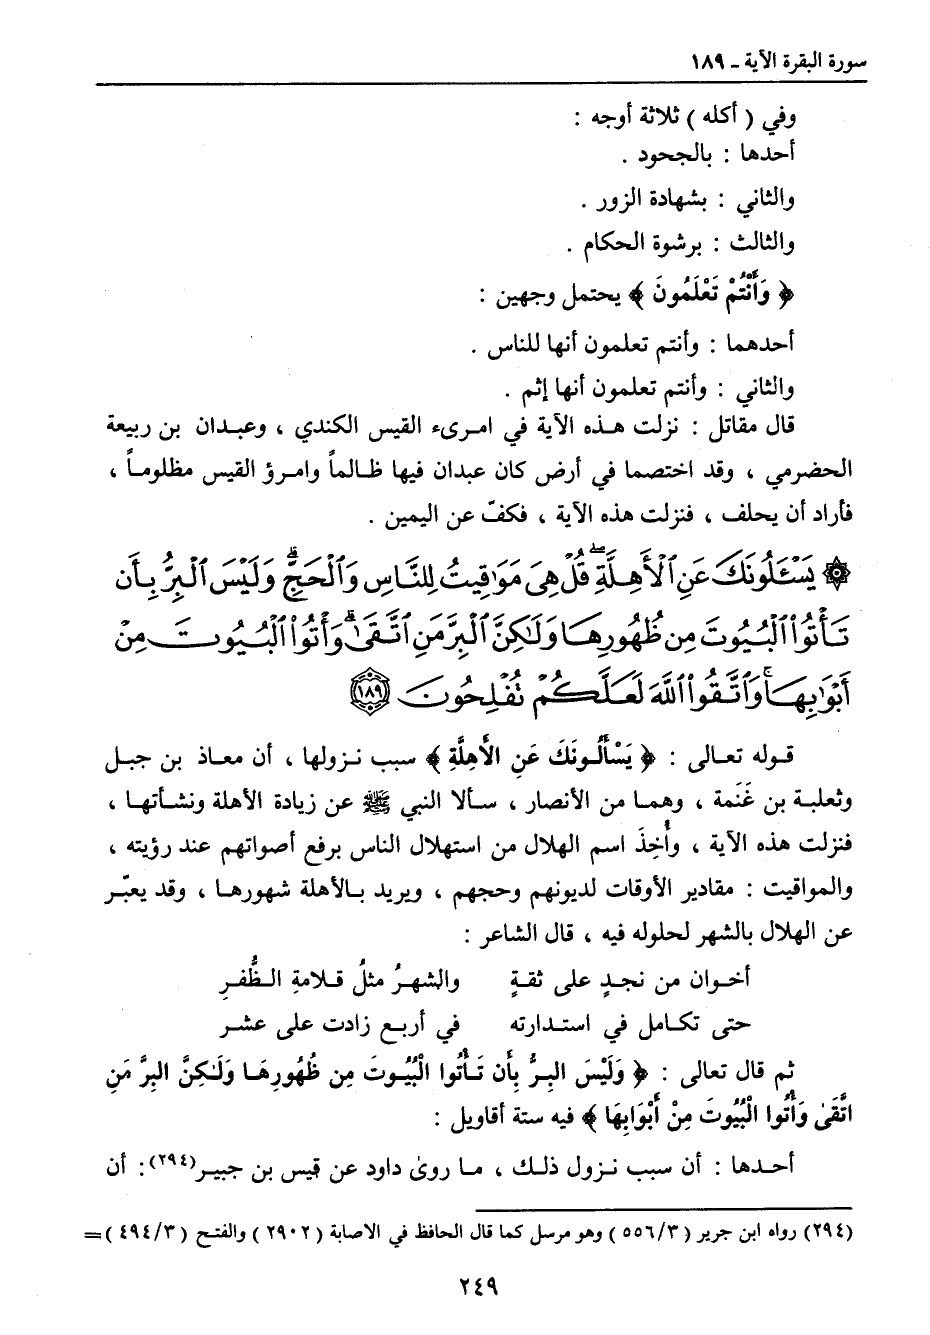 سورة البقرة الآية ـ ١٨٩
وفي ( أكله ) ثلاثة أوجه :
أحدها : بالجحود .
والثاني : بشهادة الزور .
والثالث : برشوة الحكام .
﴿ وَأَنْتُمْ تَعْلَمُونَ ﴾ يحتمل وجهين :
أحدهما : وأنتم تعلمون أنها للناس .
والثاني : وأنتم تعلمون أنها إثم .
قال مقاتل : نزلت هذه الآية في امرىء القيس الكندي ، وعبدان بن ربيعة
الحضرمي ، وقد اختصما في أرض كان عبدان فيها ظالماً وامرؤ القيس مظلوماً ،
فأراد أن يحلف ، فنزلت هذه الآية ، فكفّ عن اليمين .
۞ يَسْـَٔلُونَكَ عَنِ ٱلْأَهِلَّةِ ۖ قُلْ هِىَ مَوَٰقِيتُ لِلنَّاسِ وَٱلْحَجِّ ۗ وَلَيْسَ ٱلْبِرُّ بِأَن
تَأْتُوا۟ ٱلْبُيُوتَ مِن ظُهُورِهَا وَلَٰكِنَّ ٱلْبِرَّ مَنِ ٱتَّقَىٰ ۗ وَأْتُوا۟ ٱلْبُيُوتَ مِنْ
أَبْوَٰبِهَا ۚ وَٱتَّقُوا۟ ٱللَّهَ لَعَلَّكُمْ تُفْلِحُونَ ١٨٩
قوله تعالى : ﴿ يَسْأَلُونَكَ عَنِ الْأَهِلَّةِ ﴾ سبب نزولها ، أن معاذ بن جبل
وثعلبة بن غَنَمة ، وهما من الأنصار ، سألا النبي ﷺ عن زيادة الأهلة ونشأتها ،
فنزلت هذه الآية ، وأُخِذَ اسم الهلال من استهلال الناس برفع أصواتهم عند رؤيته ،
والمواقيت : مقادير الأوقات لديونهم وحجهم ، ويريد بالأهلة شهورها ، وقد يعبّر
عن الهلال بالشهر لحلوله فيه ، قال الشاعر :
أخوان من نجدٍ على ثقةٍ والشهرُ مثلُ قلامةِ الظُّفرِ
حتى تكامل في استدارته في أربع زادت على عشر
ثم قال تعالى : ﴿ وَلَيْسَ البِرُّ بِأَن تَأْتُوا الْبُيُوتَ مِن ظُهُورِهَا وَلَـٰكِنَّ البِرَّ مَنِ
اتَّقَىٰ وَأْتُوا الْبُيُوتَ مِنْ أَبْوَابِهَا ﴾ فيه ستة أقاويل :
أحدها : أن سبب نزول ذلك ، ما روىٰ داود عن قيس بن جبير(٢٩٤) : أن
(٢٩٤) رواه ابن جرير ( ٥٥٦/٣ ) وهو مرسل كما قال الحافظ في الاصابة ( ٢٩٠٢ ) والفتح ( ٤٩٤/٣ ) =
٢٤٩